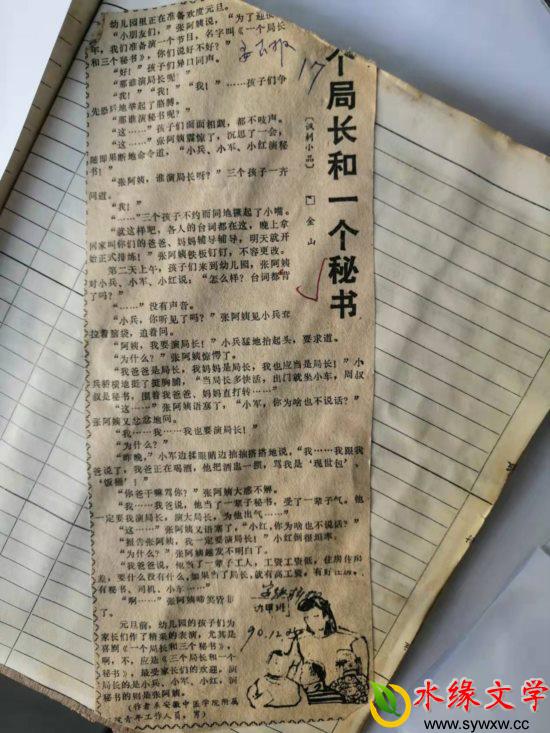 个局长和一个秘书
〔讽刺小品〕
金山
17
幼儿园里正在准备欢度元旦。
“小朋友们，”张阿姨说，“为了迎接
年，我们准备演一个节目，名字叫《一个局长
和三个秘书》，你们说好不好？”
“好！”孩子们异口同声。
“那谁演局长呢？”
“我！”“我！”“我！”……孩子们争
先恐后地举起了胳膊。
“那谁演秘书呢？”
“这……”孩子们面面相觑，都不吱声。
“这……”张阿姨震惊了，沉思了一会，
随即果断地命令道，“小兵、小军、小红演秘
书！”
“张阿姨，谁演局长呀？”三个孩子一齐
问道。
“我！”
“……”三个孩子不约而同地撅起了小嘴。
“就这样吧，各人的台词都在这，晚上拿
回家叫你们的爸爸、妈妈辅导辅导，明天就开
始正式排练！”张阿姨铁板钉钉，不容更改。
第二天上午，孩子们来到幼儿园，张阿姨
对小兵、小军、小红说，“怎么样？台词都背
了吗？”
“……”没有声音。
“小兵，你听见了吗？”张阿姨见小兵耷
拉着脑袋，追着问。
“阿姨，我要演局长！”小兵猛地抬起头，要求道。
“为什么？”张阿姨惊愕了。
“我爸爸是局长，我妈妈是局长，我也应当是局长！”小
兵骄横地挺了挺胸脯，“当局长多快活，出门就坐小车，周叔
叔是秘书，围着我爸爸、妈妈直打转……”
“这……”张阿姨语塞了，“小军，你为啥也不说话？”
张阿姨又忿忿地问。
“我……我……我也要演局长！”
“为什么？”
“昨晚，”小军边揉眼睛边抽抽搭搭地说，“我……我跟我
爸说了，我爸正在喝酒，他把酒盅一掼，骂我是‘现世包’、
‘饭桶’！”
“你爸干嘛骂你？”张阿姨大惑不解。
“我……我爸说，他当了一辈子秘书，受了一辈子气。他
一定要我演局长，演大局长，为他出气……”
“这……”张阿姨又语塞了，“小红，你为啥也不说话？”
“报告张阿姨，我要演局长！”小红倒很坦率。
“为什么？”张阿姨越发不明白了。
“我爸爸说，他当了一辈子工人，工资工资低，住房住房
差，要什么没有什么，如果当了局长，就有高工资，有好住房，
有秘书、司机、小车……”
“啊……”张阿姨啼笑皆非
了。
元旦前，幼儿园的孩子们为
家长们作了精采的表演，尤其是
喜剧《一个局长和三个秘书》，
啊，不，应是《三个局长和一个
秘书》，最受家长们的欢迎，演
局长的是小兵、小军、小红，演
秘书的则是张阿姨。
（作者系安徽中医学院附属
医院青年工作人员，男）
90.12.
水缘文学
www.sywxw.cn